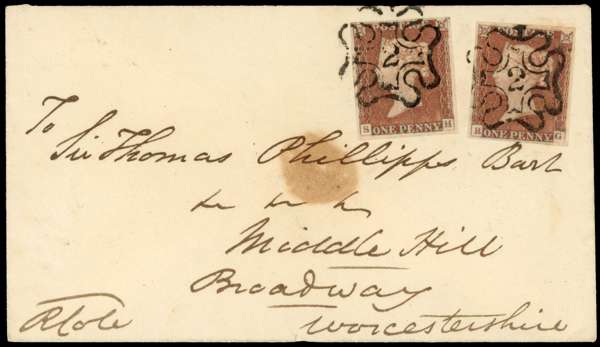 2
2
S H
ONE PENNY
H G
ONE PENNY
To
Sir Thomas Phillipps Bart
Middle Hill
Broadway
Worcestershire
RCole